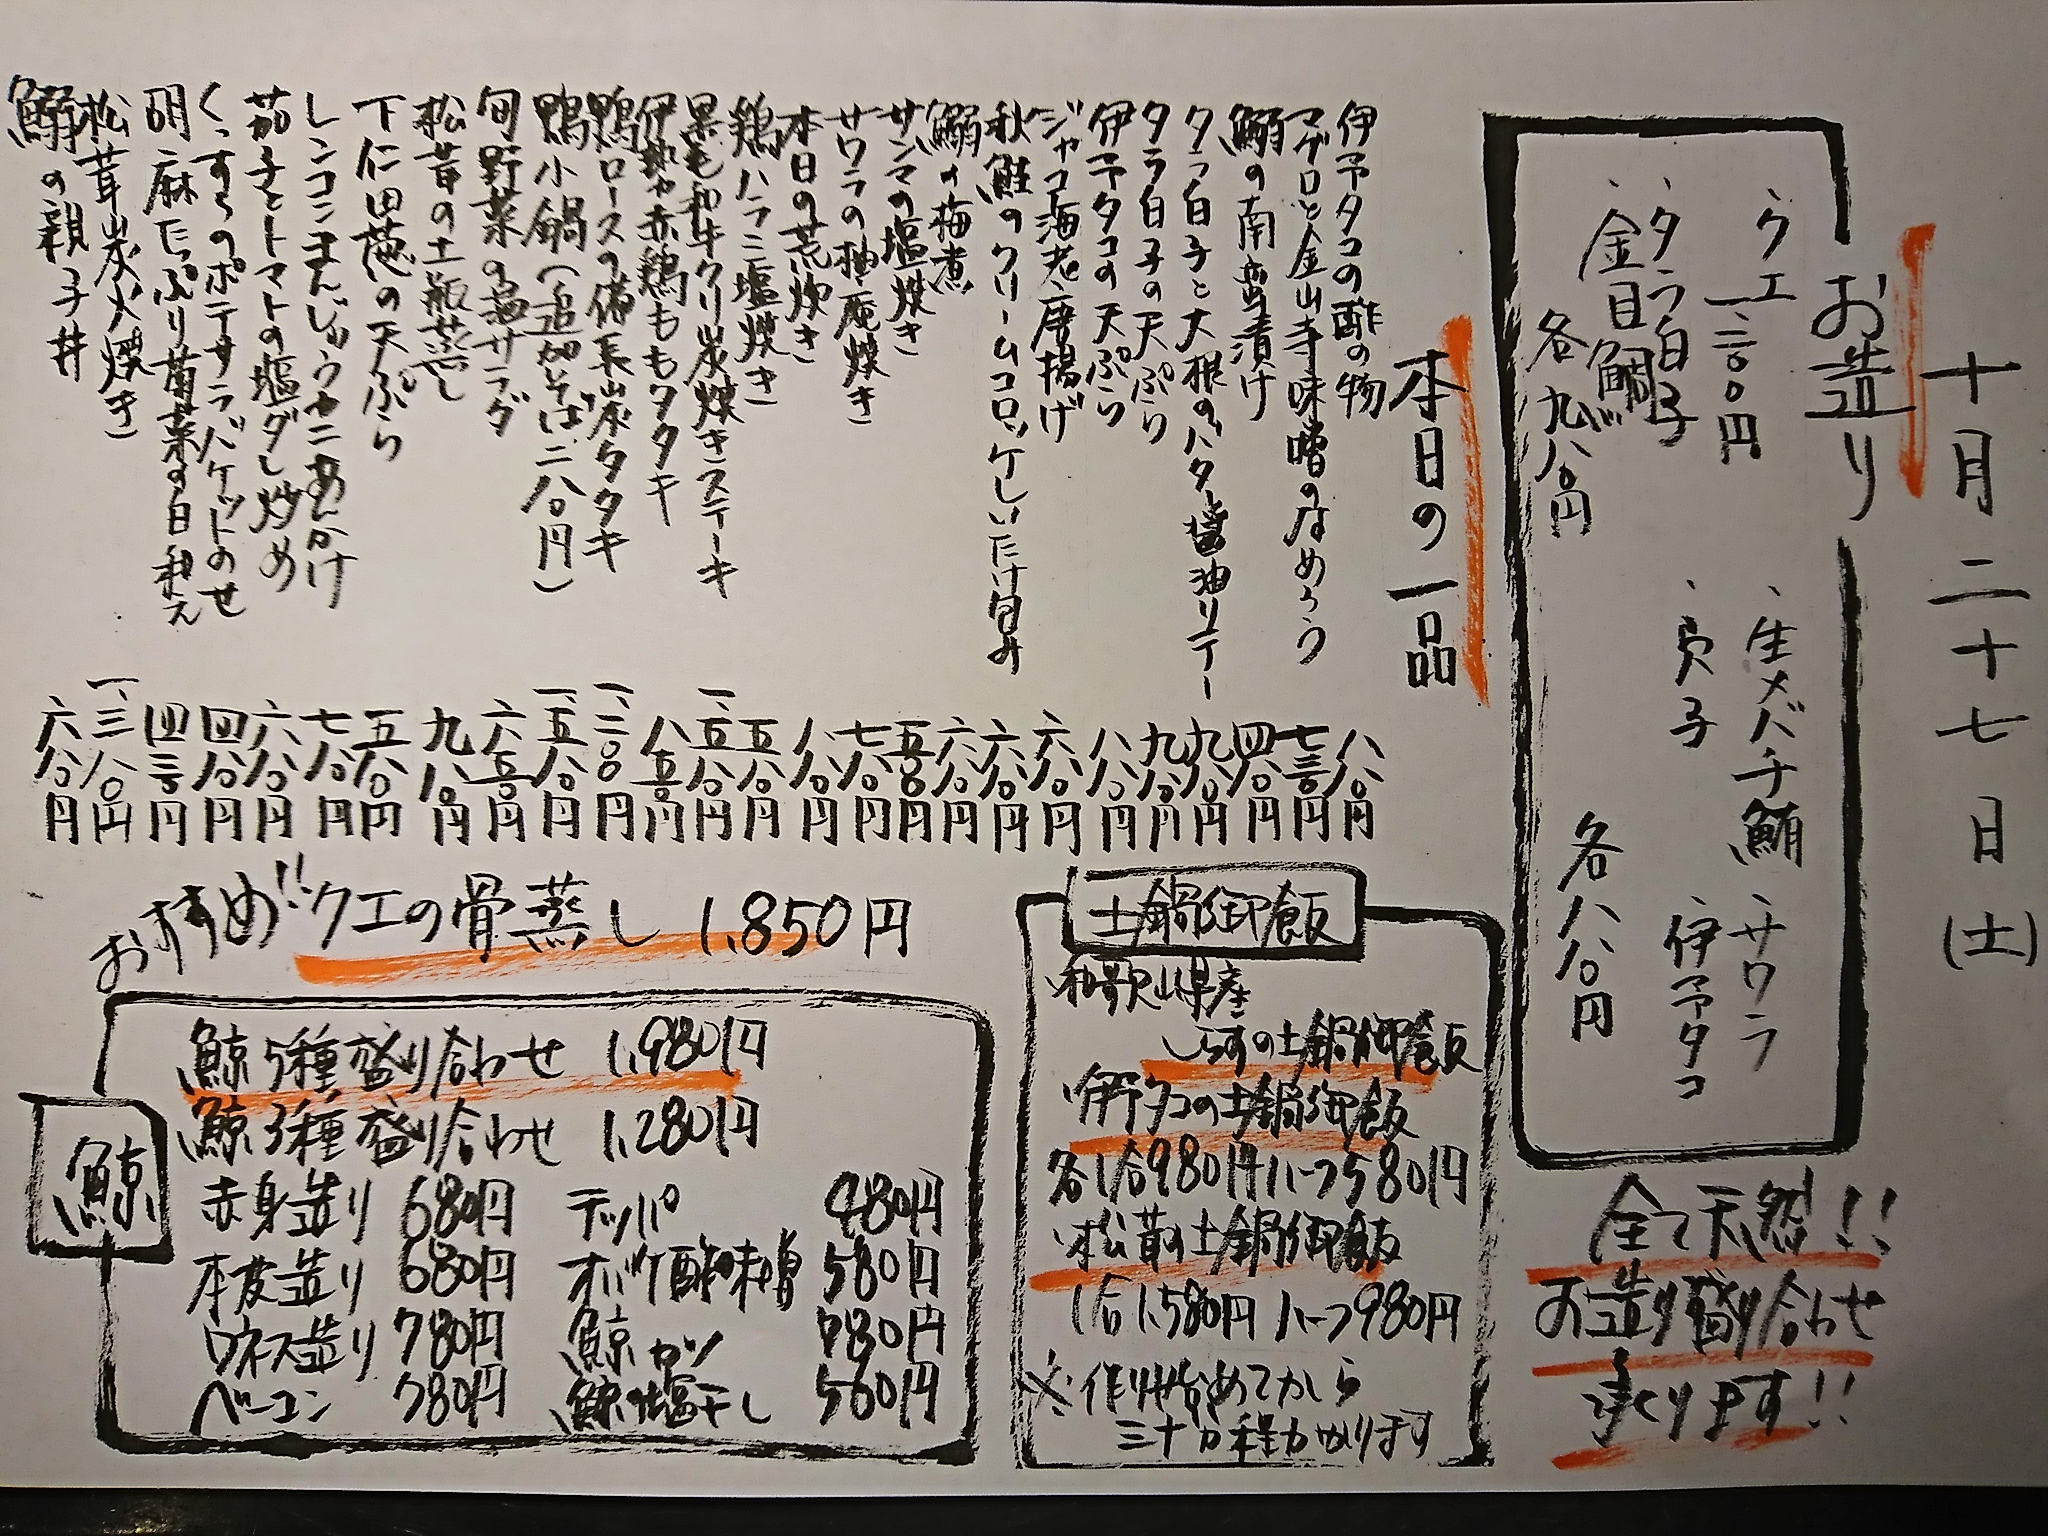 十月二十七日(土)
お造り
、クエ
一、二〇〇円
、タラ白子
、金目鯛
各九八〇円
、生メバチ鮪、サワラ
、貝子、伊予タコ
各八八〇円
全て天然!!
お造り盛り合わせ
承ります!!
本日の一品
伊予タコの酢の物 八八〇円
マグロと金山寺味噌のなめろう 七三〇円
鰯の南蛮漬け 四八〇円
タラ白子と大根のバター醤油ソテー 九八〇円
タラ白子の天ぷら 九八〇円
伊予タコの天ぷら 八八〇円
ジャコ海老唐揚げ 六八〇円
秋鮭のクリームコロッケしいたけ包み 六八〇円
鰯の梅煮 六八〇円
サンマの塩焼き 五八〇円
サワラの柚庵焼き 七八〇円
本日の荒炊き 八八〇円
鶏ハラミ塩焼き 五八〇円
黒毛和牛クリ炭焼きステーキ 一、五八〇円
伊勢赤鶏ももタタキ 八五〇円
鴨ロースの備長炭タタキ 一、二〇〇円
鴨小鍋(追加そば二八〇円) 一、五八〇円
旬野菜のサラダ 六五〇円
松茸の土瓶蒸し 九八〇円
下仁田葱の天ぷら 五八〇円
レンコンまんじゅうカニあんかけ 七八〇円
茄子とトマトの塩ダレ炒め 六八〇円
くっすらのポテサラバケットのせ 四八〇円
胡麻たっぷり菊菜の白和え 四三〇円
松茸炭火焼き 一、三八〇円
鰯の親子丼 六八〇円
おすすめ!!クエの骨蒸し 1,850円
土鍋御飯
、和歌山県産
しらすの土鍋御飯
、伊予タコの土鍋御飯
各1合980円ハーフ580円
、松茸の土鍋御飯
1合1,580円ハーフ980円
※作り始めてから
三十分程かかります
鯨
鯨5種盛り合わせ 1,980円
鯨3種盛り合わせ 1,280円
赤身造り 680円 テッパ 480円
本皮造り 680円 オバケ酢味噌 580円
ウネス造り 780円 鯨カツ 880円
ベーコン 780円 鯨塩干し 560円